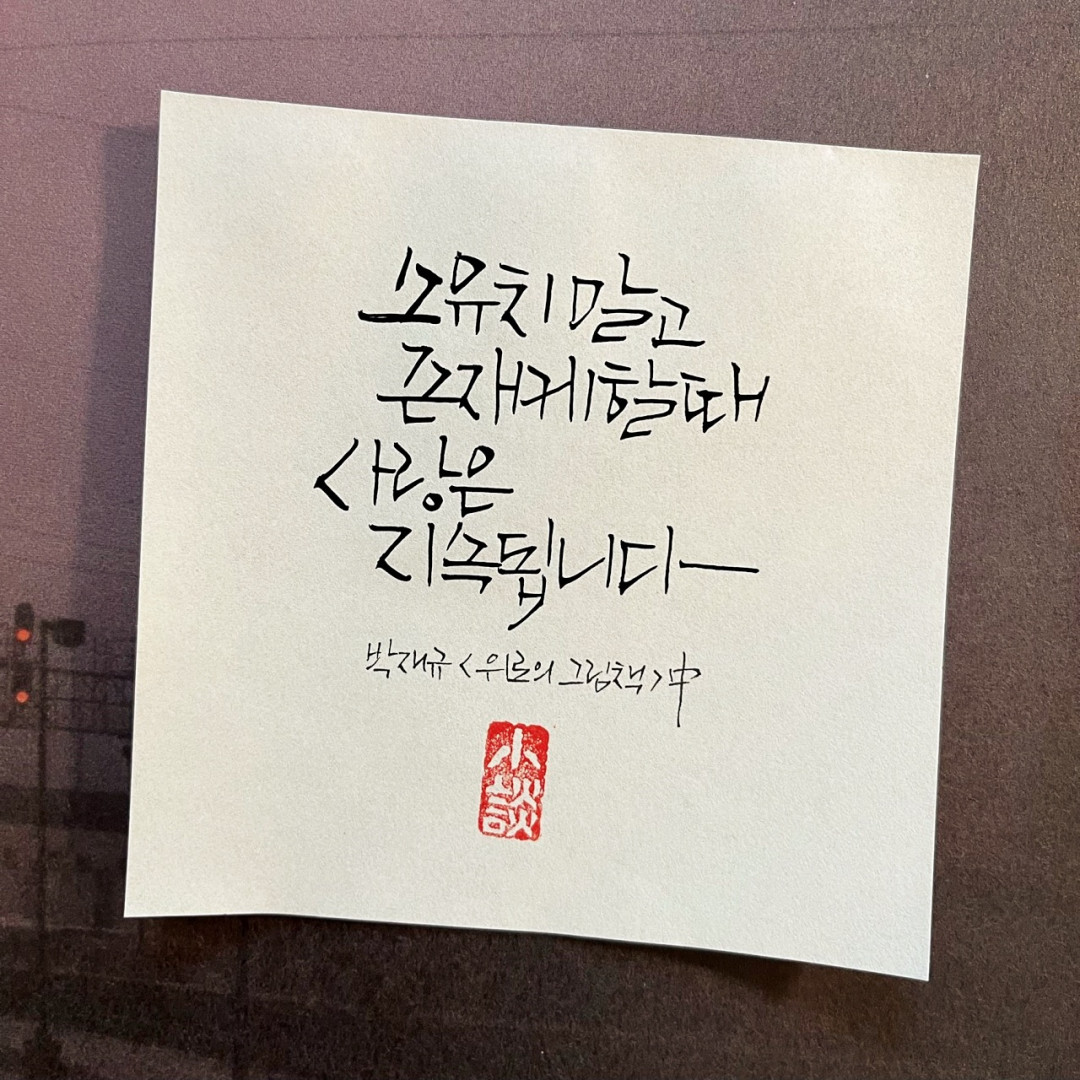 소유치 말고
존재케 할 때
사랑은
지속됩니다
박재규 <위로의 그림책> 中
小談